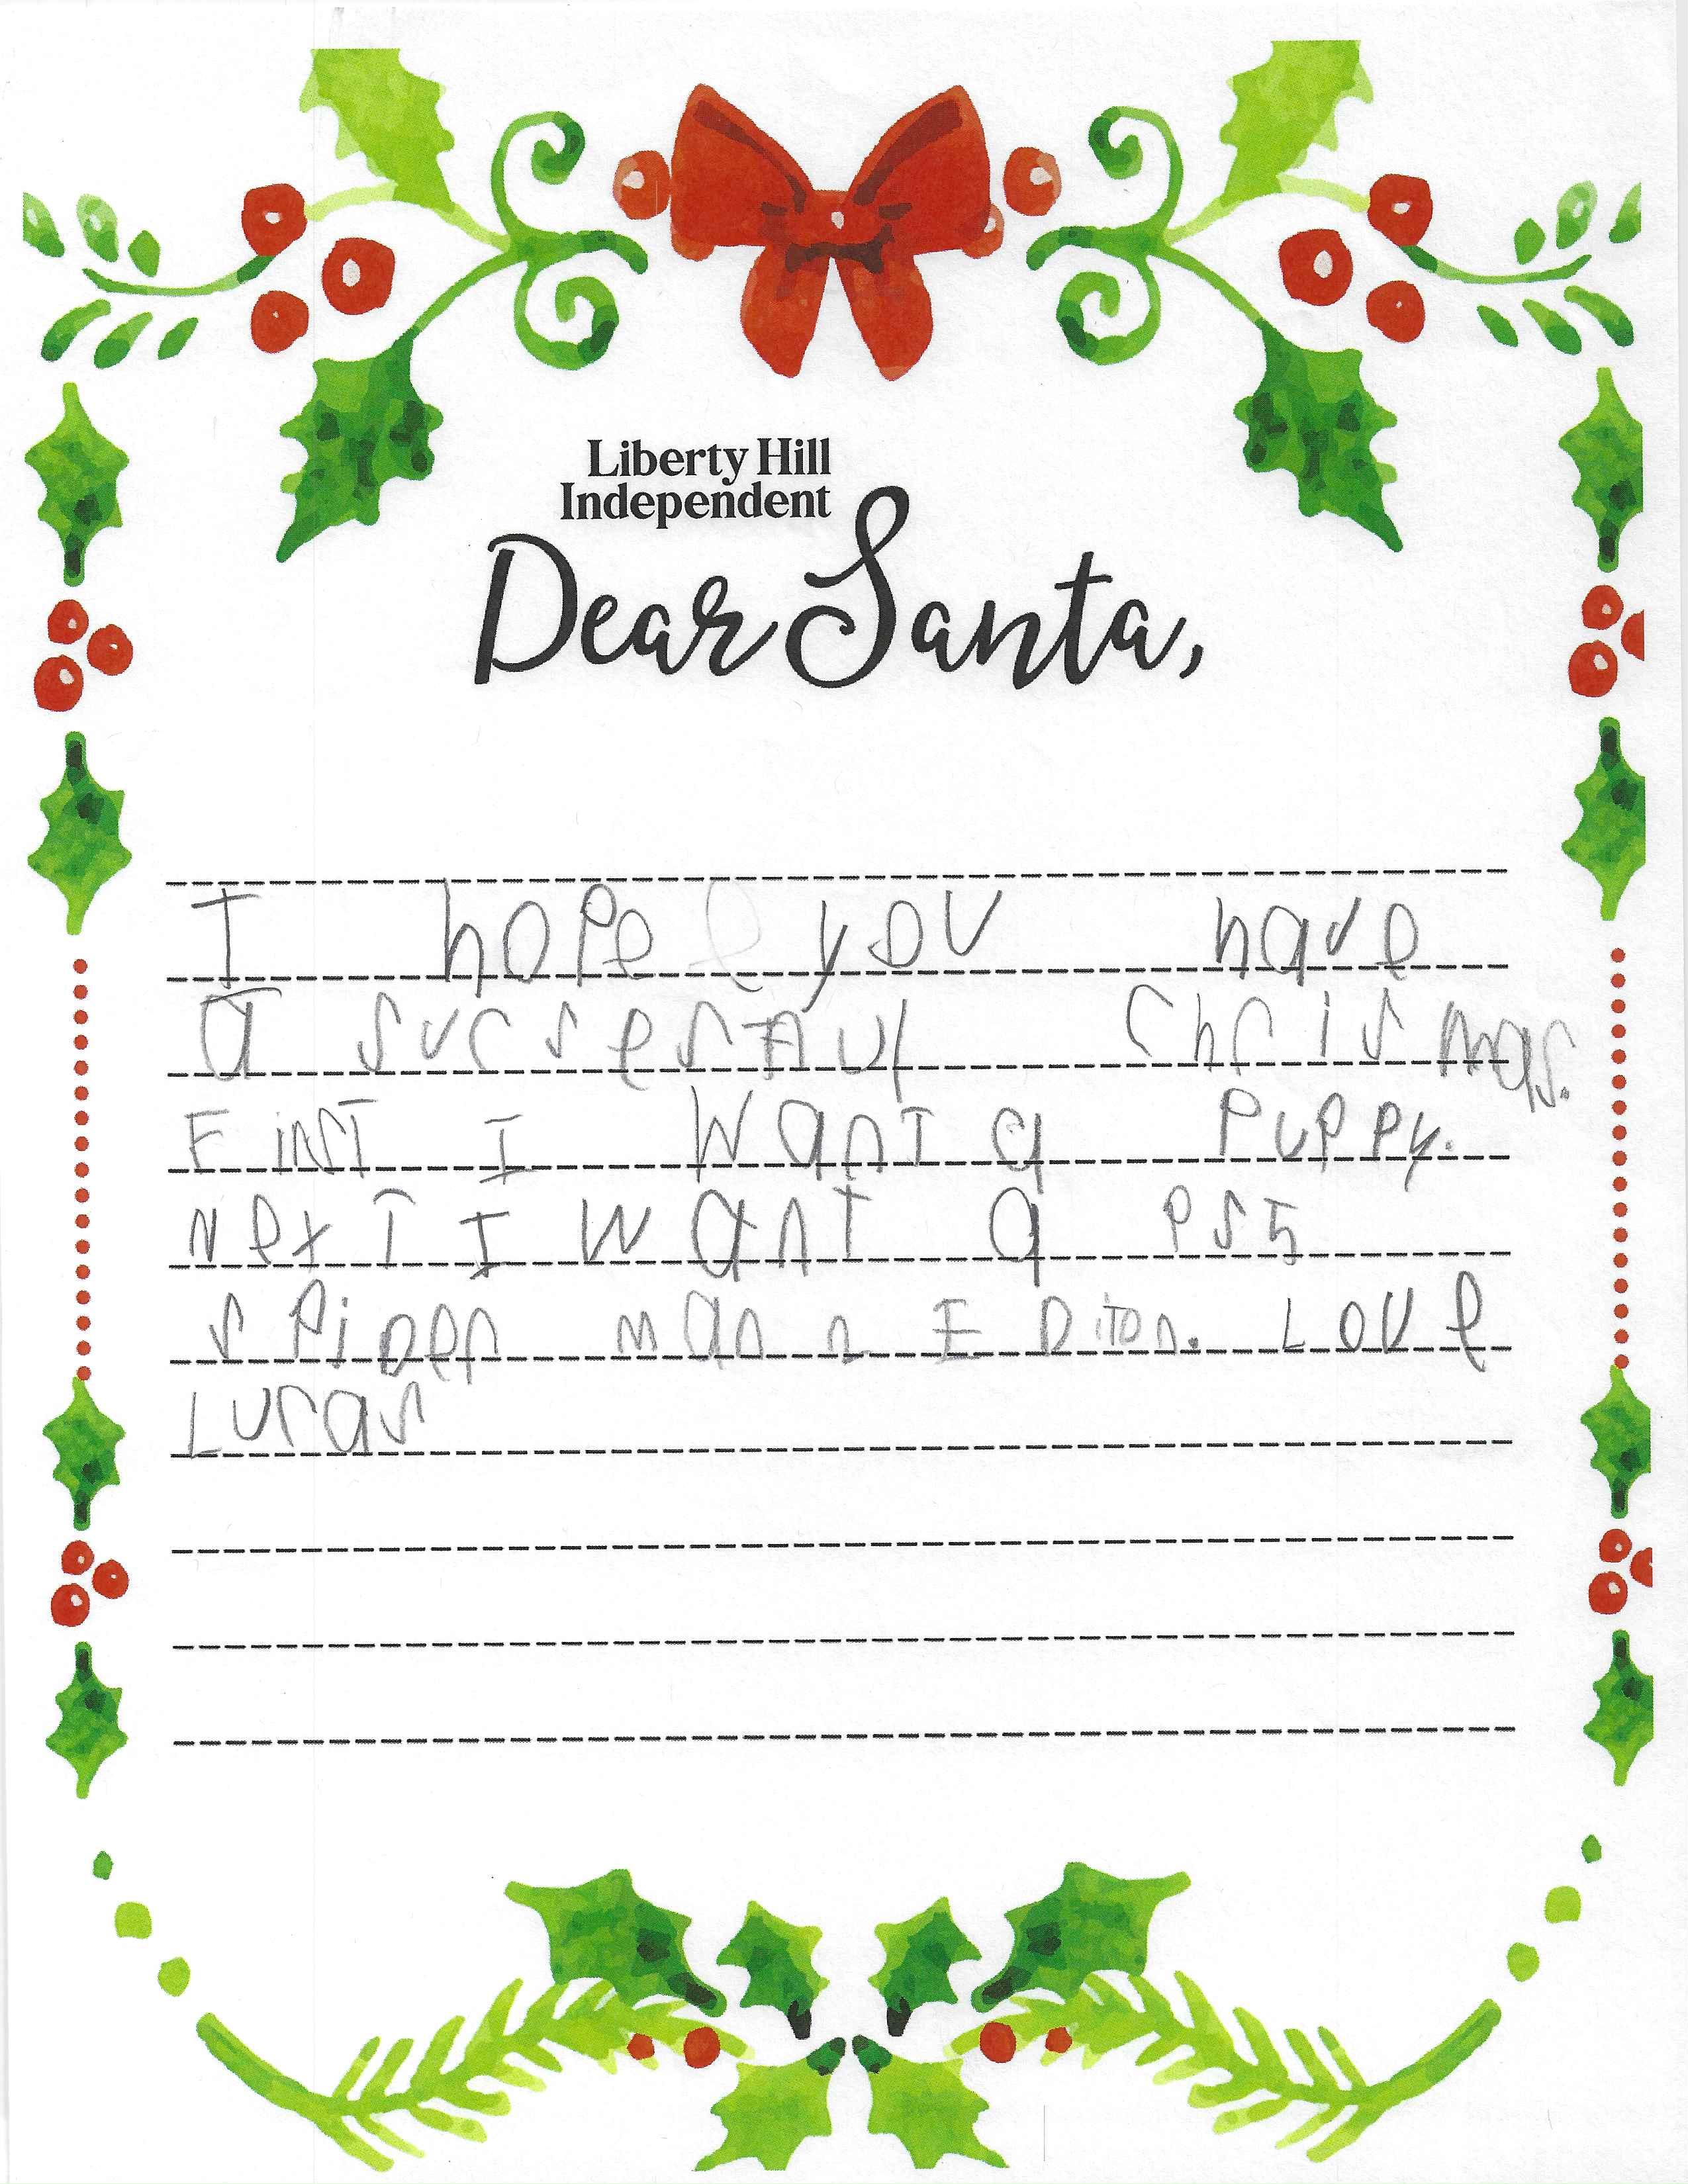 Liberty Hill
Independent
Dear Santa,
I hope you have
a sucsesful Chrismas.
First I want a puppy.
Next I want a PS5
spider man 2 Editon. Love
Lucas